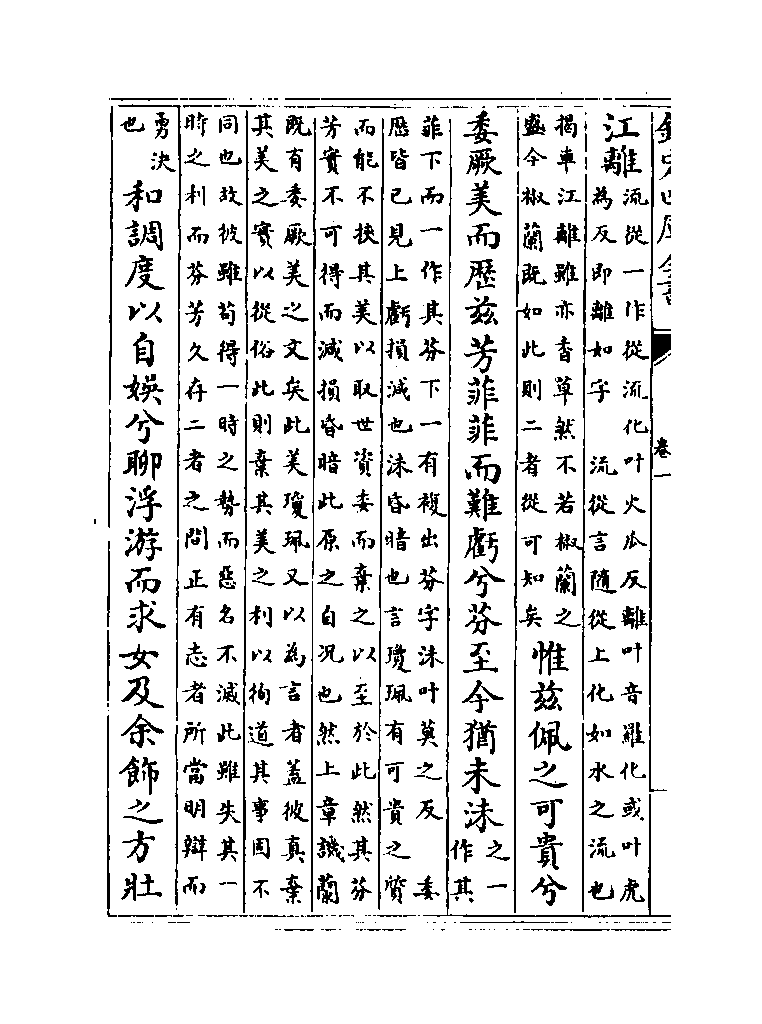 欽定四庫全書 卷一
江離流從一作從流化叶火瓜反離叶音羅化或叶虎
為反即離如字 流從言隨從上化如水之流也
揭車江離雖亦香草然不若椒蘭之
盛今椒蘭既如此則二者從可知矣惟兹佩之可貴兮
委厥美而歷兹芳菲菲而難虧兮芬至今猶未沬之一
作其
菲下而一作其芬下一有複出芬字沬叶莫之反 委
歷皆已見上虧損減也沬昏暗也言瓊珮有可貴之質
而能不挾其美以取世資委而棄之以至於此然其芬
芳實不可得而減損昏暗此原之自况也然上章譏蘭
既有委厥美之文矣此美瓊珮又以為言者蓋彼真棄
其美之實以從俗此則棄其美之利以徇道其事固不
同也故彼雖苟得一時之勢而惡名不滅此雖失其一
時之利而芬芳久存二者之間正有志者所當明辯而
勇決
也和調度以自娛兮聊浮游而求女及余飾之方壯